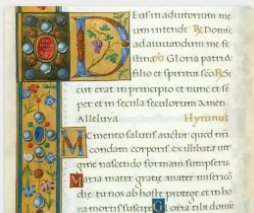 Deus in adiutorium me
um intende ℟ Domine
ad aiuuandum me fe
stina ℣ Gloria patri &
filio et spiritui sco ℟ Si
cut erat in principio et nunc et se
per et in secula seculorum Amen
Alleluya Hymnus
Memento salutis auctor quod nri
quondam corporis ex illibata uir
gine nascendo formam sumpseris
Maria mater gratie mater misericor
die tu nos ab hoste protege et in hora
mortis suscipe Gloria tibi domi